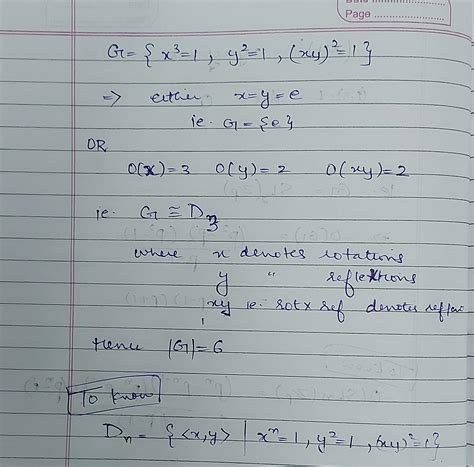 Page
G = { x³=1 , y²=1 , (xy)²=1 }
⇒ either x=y=e
ie. G = {e}
OR
O(x)=3 O(y)=2 O(xy)=2
ie. G ≅ D₃
where x denotes rotations
y " reflextions
xy ie. rot x ref denotes
Hence |G|=6
To know
Dₙ = { <x,y> | xⁿ=1, y²=1, (xy)²=1 }